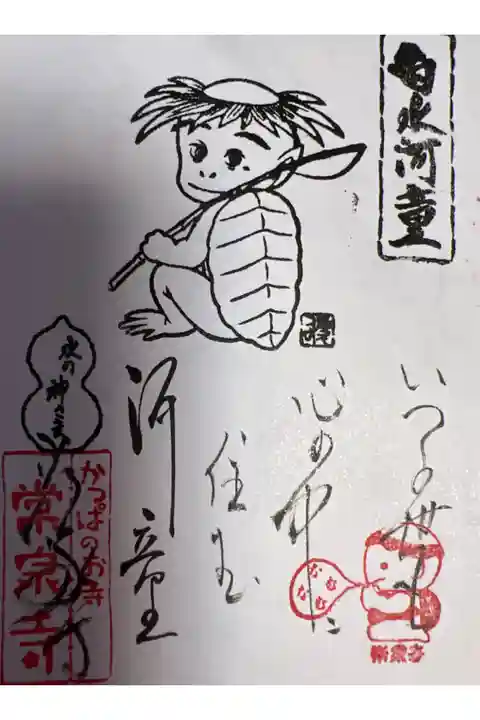 白水河童
いつの世も
心の中に
住む
河童
水の神さま
かっぱのおき
常泉寺
なむ
なむ
常泉寺